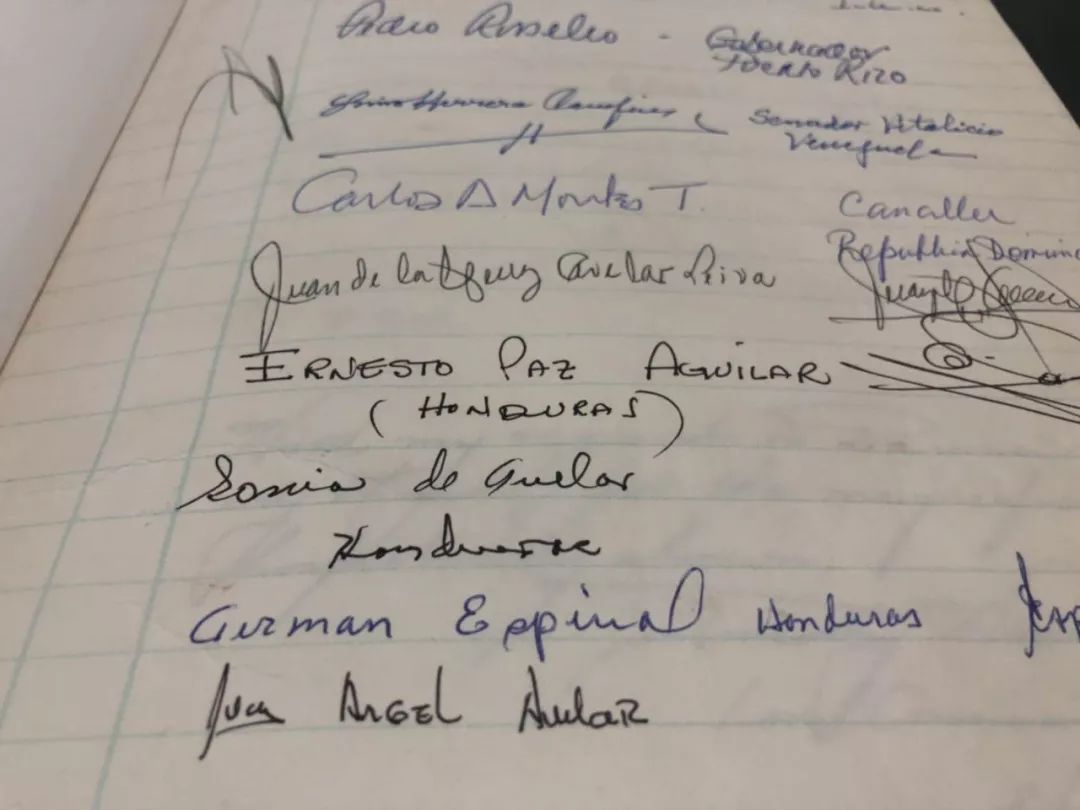 Pedro Rosselló - Gobernador
Puerto Rico
Herrera Campins Senador Vitalicio
Venezuela
Carlos A Montes T. Canciller
Republica Domini
Juan de la Cruz Avelar Leiva
ERNESTO PAZ AGUILAR
(HONDURAS)
Sonia de Avelar
Honduras
German Espinal Honduras
Juan ANGEL Avelar